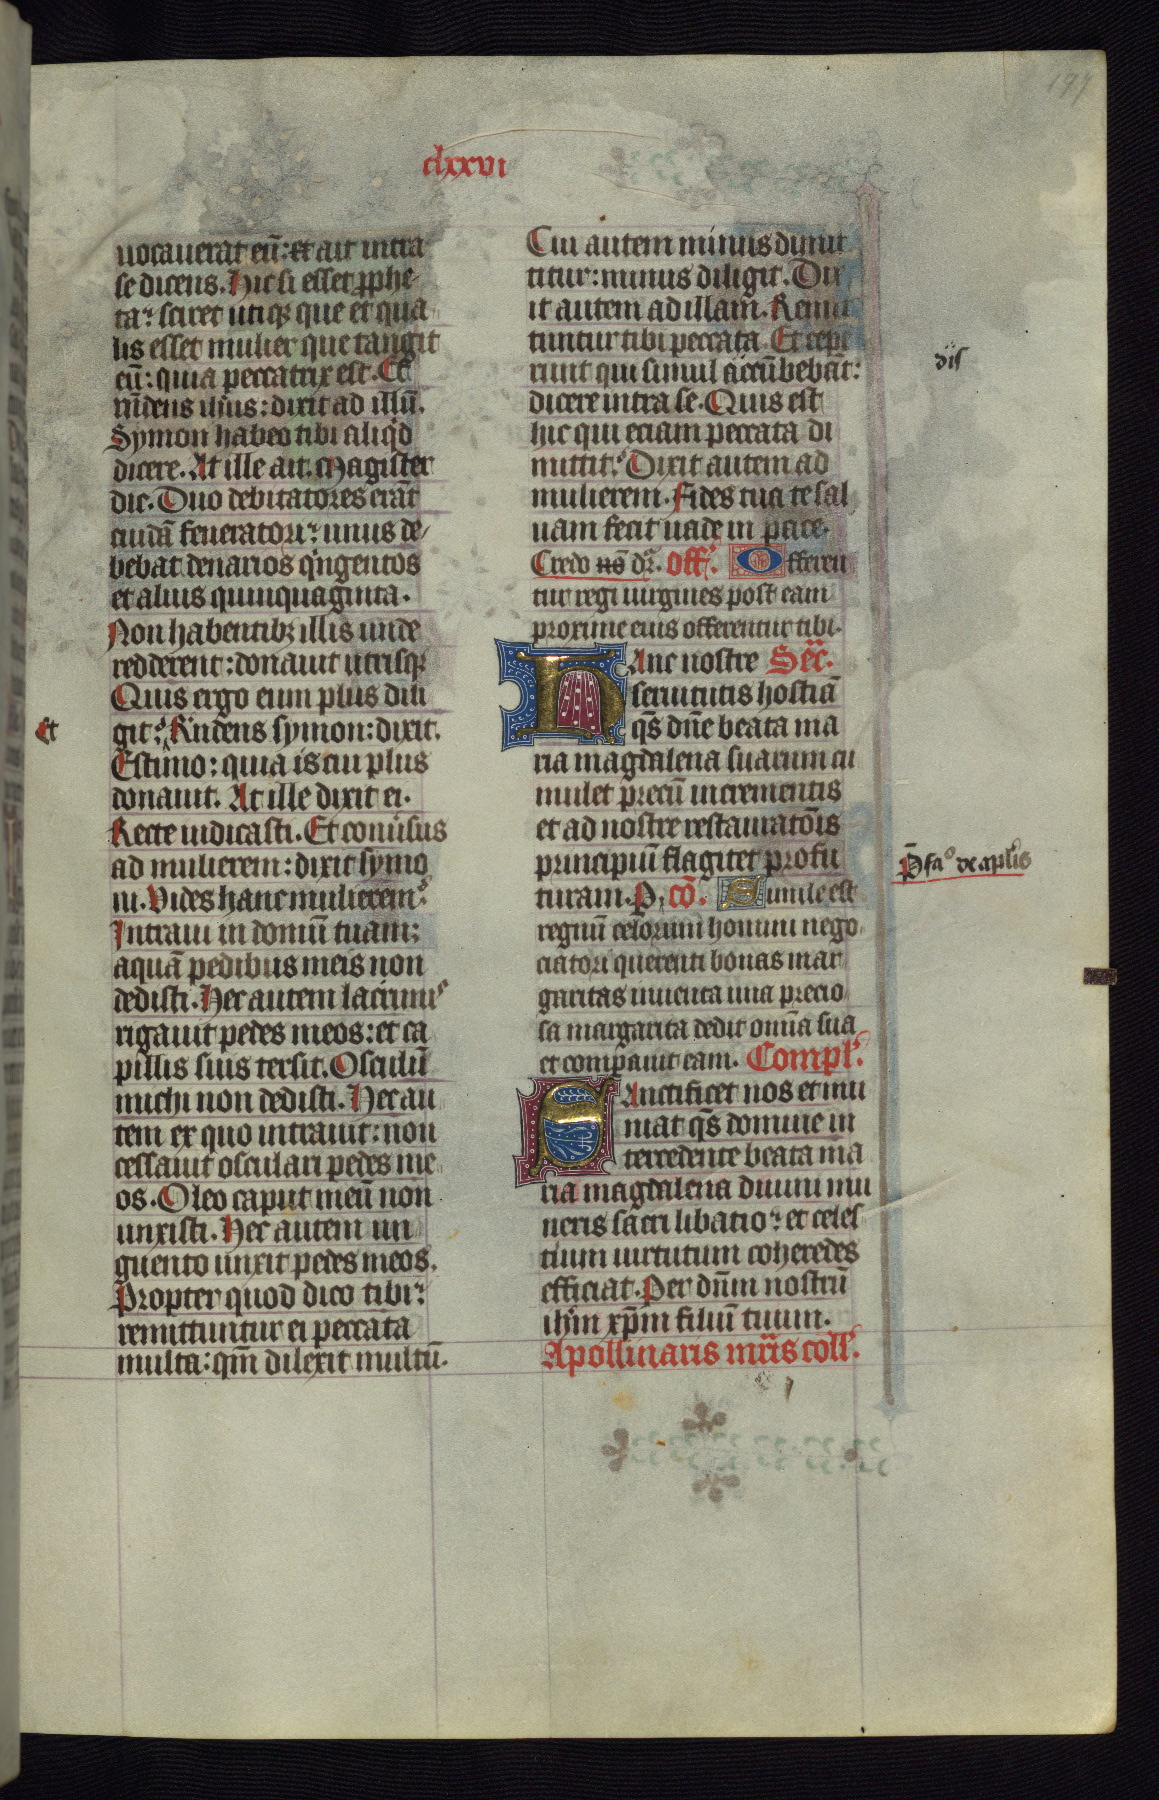 197
clxxvi
uocauerat eū: et ait intra
se dicens. Hic si esset pphe-
ta: sciret utiqꝫ que et qua-
lis esset mulier que tangit
eū: quia peccatrix est. Et
rñdens ihus: dixit ad illū.
Symon habeo tibi aliqd
dicere. At ille ait. Magister
dic. Duo debitatores erāt
cuidā feneratori: unus de-
bebat denarios qngentos
et alius quinquaginta.
Non habentibꝫ illis unde
redderent: donauit utrisqꝫ
Quis ergo eum plus dili
et
git? Rndens symon: dixit.
Estimo: quia is cui plus
donauit. At ille dixit ei.
Recte iudicasti. Et conusus
ad mulierem: dixit symo
ni. Vides hanc mulierem?
Intraui in domū tuam:
aquā pedibus meis non
dedisti. Hec autem lacrimis
rigauit pedes meos: et ca
pillis suis tersit. Osculū
michi non dedisti. Hec au
tem ex quo intrauit: non
cessauit osculari pedes me
os. Oleo caput meū non
unxisti. Hec autem un
guento unxit pedes meos.
Propter quod dico tibi:
remittuntur ei peccata
multa: qm̄ dilexit multū.
Cui autem minus dimit
titur: minus diligit. Dix
it autem ad illam. Remit
tuntur tibi peccata. Et cepe
dis
runt qui simul accūbebāt:
dicere intra se. Quis est
hic qui eciam peccata di
mittit? Dixit autem ad
mulierem. Fides tua te sal
uam fecit uade in pace.
Credo no dr. off. Offeren
tur regi uirgines post eam
proxime eius offerentur tibi.
Hanc nostre Secr.
seruitutis hostiā
qs dne beata ma
ria magdalena suarum cu
mulet precū incrementis
et ad nostre restauratōis
principiū flagitet profu
Pfao de aplis
turam. P. cō. Simile est
regnū celorum homini nego
ciatori querenti bonas mar
garitas inuenta una precio
sa margarita dedit omia sua
et comparauit eam. Compl.
Sanctificet nos et mu
niat qs domine in
tercedente beata ma
ria magdalena diuini mu
neris sacri libatio: et celes
tium uirtutum coheredes
efficiat. Per dnm nostrū
ihm xpm filiū tuum.
Apollinaris mris coll.